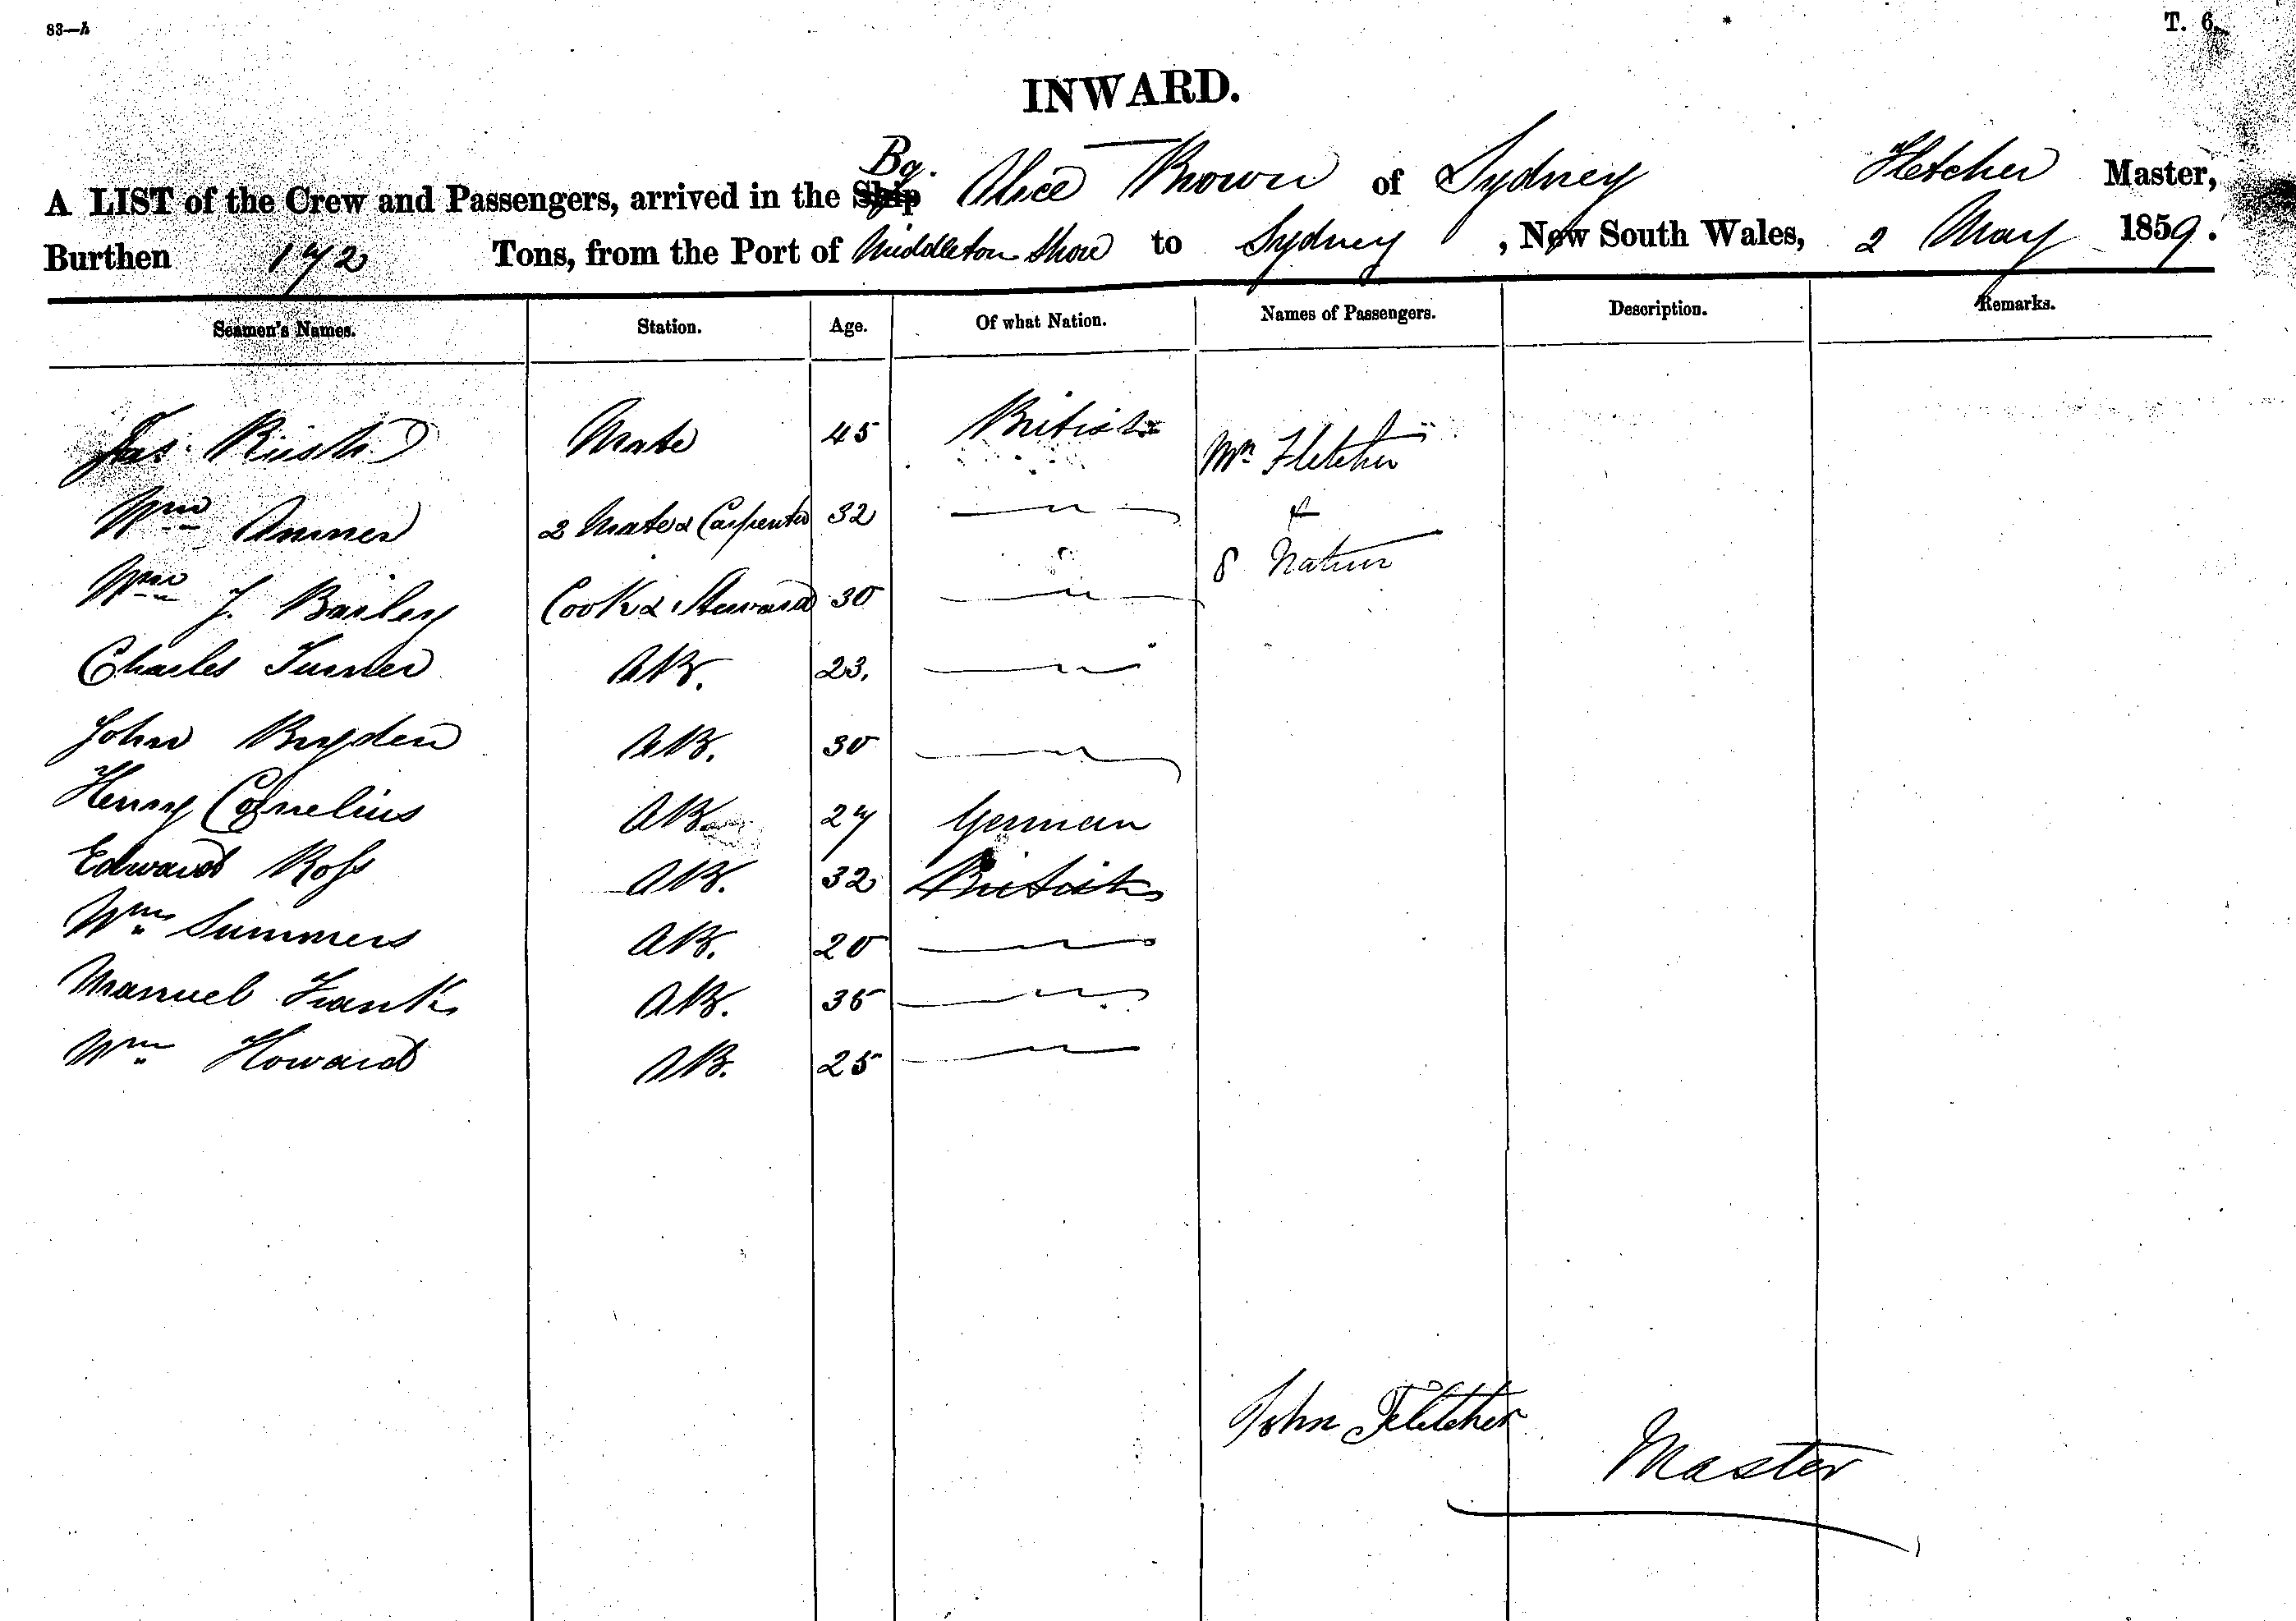 83—h
T. 6.
INWARD.
A LIST of the Crew and Passengers, arrived in the Ship Bq. Alice Brown of Sydney Fletcher Master,
Burthen 172 Tons, from the Port of Middleton Shoal to Sydney, New South Wales, 2 May 1859.
Seamen's Names. Station. Age. Of what Nation. Names of Passengers. Description. Remarks.
Jas. Mate 45 British Mrs Fletcher
Wm 2 Mate & Carpenter 32 — " — &
8
Wm J. Bailey Cook & Steward 30 — " —
Charles Turner AB. 23. — " —
John Bryden AB. 30 — " —
Henry Cornelius AB 27 German
Edward Ross AB. 32 British
Wm Summers AB. 20 — " —
Manuel Frank AB. 35 — " —
Wm Howard AB. 25 — " —
John Fletcher
Master